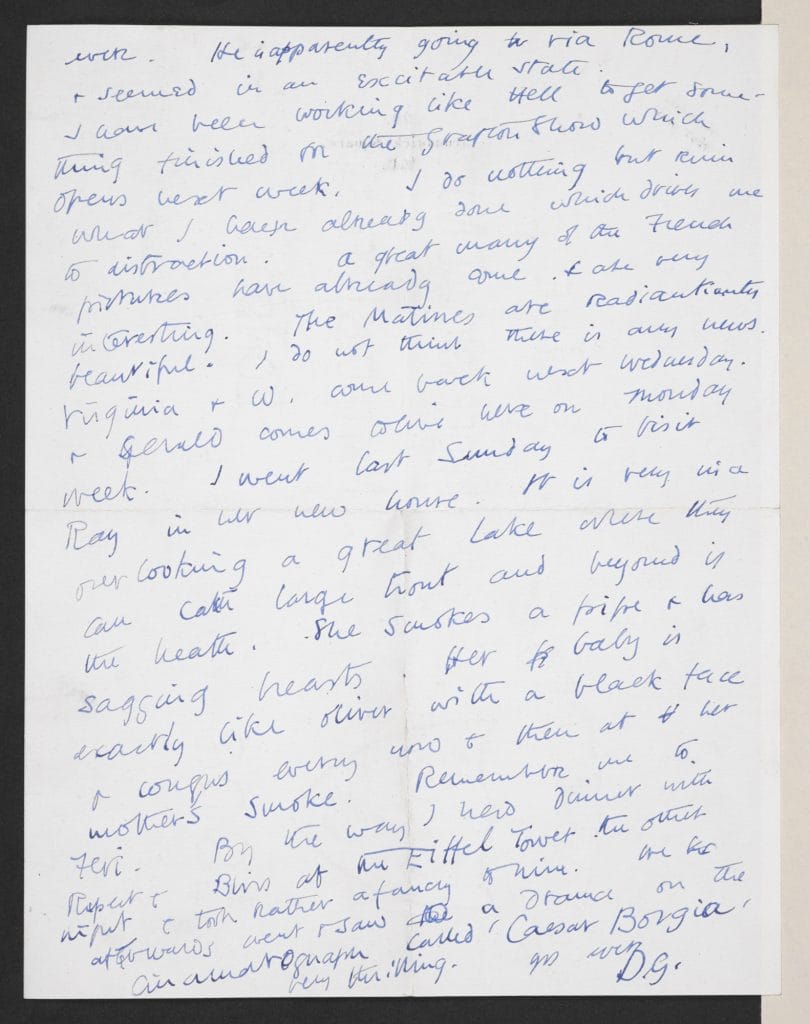 ever. He is apparently going to via Rome,
& seemed in an excitable state.
I have been working like Hell to get some-
thing finished for the Grafton Show which
opens next week. I do nothing but ruin
what I have already done which drives me
to distraction. A great many of the French
pictures have already come & are very
interesting. The Matisses are radiantly
beautiful. I do not think there is any news.
Virginia & W. come back next Wednesday.
& Gerald comes to live here on Monday
week. I went last Sunday to visit
Ray in her new house. It is very in a
overlooking a great Lake where they
can catch large trout and beyond is
the heath. She smokes a pipe & has
sagging breasts Her baby is
exactly like Oliver with a black face
& coughs every now & then at her
mother's smoke. Remember me to
Feri. By the way I had dinner with
Rupert & at the Eiffel Tower the other
night & took rather a fancy to him. We
afterwards went & saw a drama on the
cinamatograph called 'Caesar Borgia'
very thrilling. yrs ever
D.G.